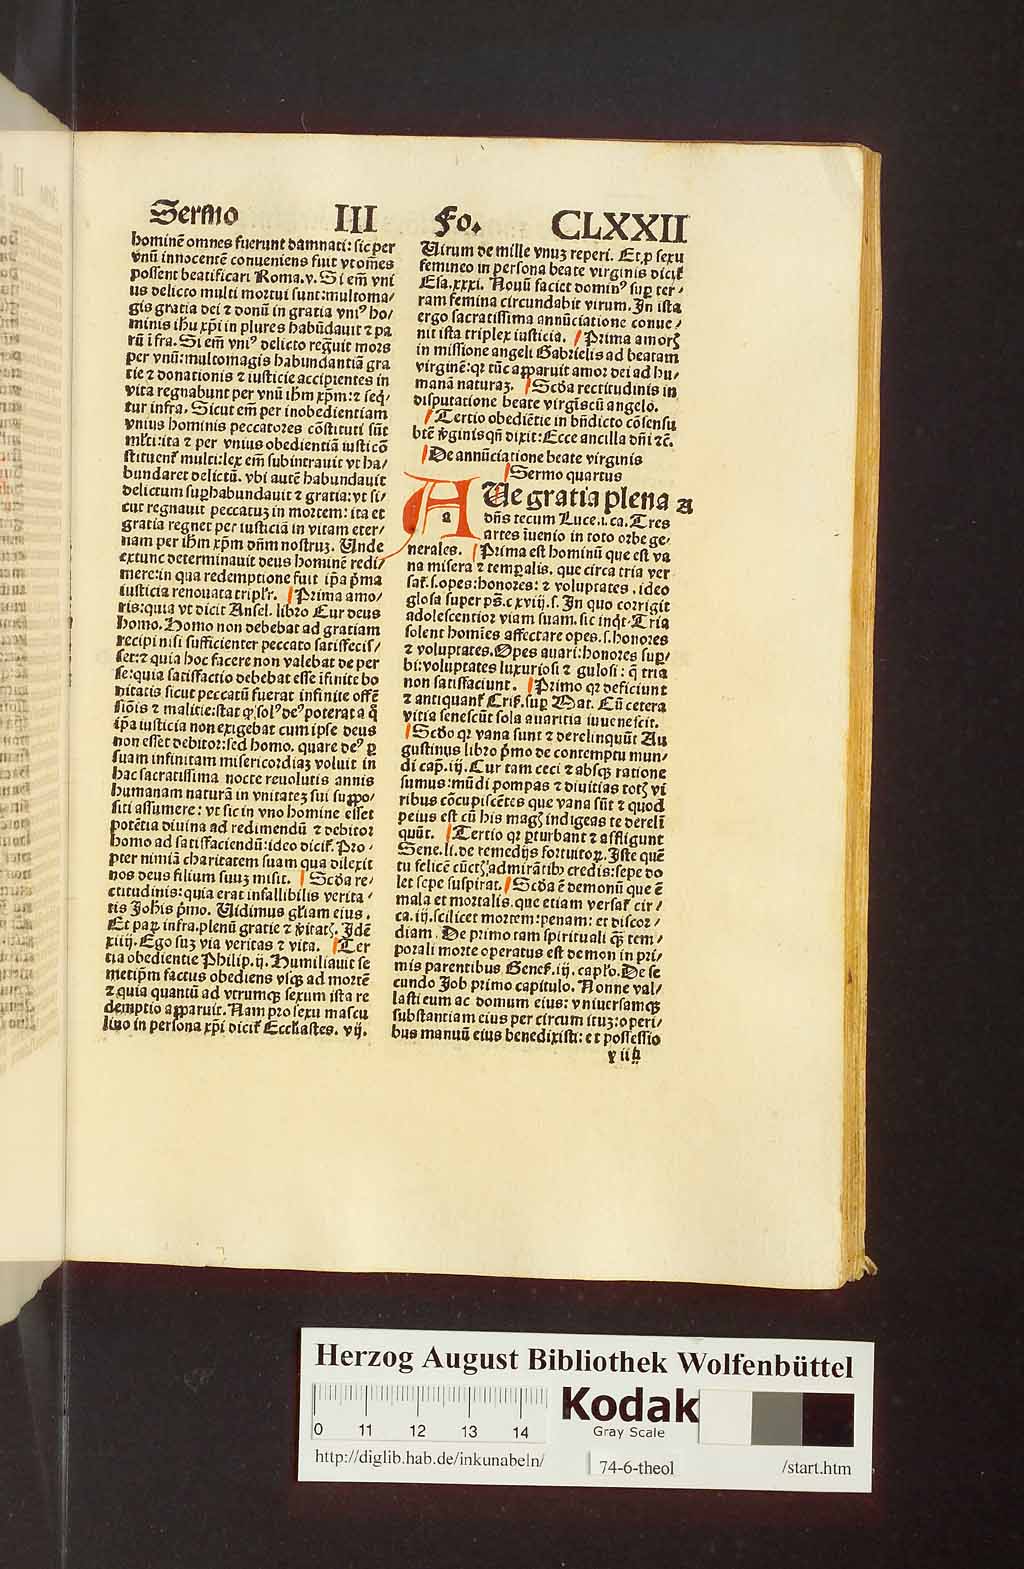 Sermo III Fo. CLXXII
hominē omnes fuerunt damnati: sic per
vnū innocentē conueniens fuit vt om̄es
possent beatificari Roma. v. Si em̄ vni
us delicto multi mortui sunt: multoma/
gis gratia dei ⁊ donū in gratia vniꝰ ho/
minis ihū xp̄i in plures habūdauit ⁊ pa
rū īfra. Si em̄ vniꝰ delicto regͣuit mors
per vnū: multomagis habundantiā gra
tie ⁊ donationis ⁊ iusticie accipientes in
vita regnabunt per vnū ihm̄ xp̄m: ⁊ seq̄/
tur infra. Sicut em̄ per inobedientiam
vnius hominis peccatores cōstituti sūt
ml̄ti: ita ⁊ per vnius obedientiā iusti cō
stituent᷑ multi: lex em̄ subintrauit vt ha/
bundaret delictū. vbi autē habundauit
delictum suꝑhabundauit ⁊ gratia: vt si/
cut regnauit peccatuꝫ in mortem: ita et
gratia regnet per iusticiā in vitam eter/
nam per ihm̄ xp̄m dn̄m nostruꝫ. Unde
ex tunc determinauit deus hominē redi/
mere: in qua redemptione fuit ip̄a p̄ma
iusticia renouata tripl'r. Prima amo/
ris: quia vt dicit Ansel. libro Cur deus
homo. Homo non debebat ad gratiam
recipi nisi sufficienter peccato satisfecis/
set: ⁊ quia hoc facere non valebat de per
se: quia satisfactio debebat esse īfinite bo
nitatis sicut peccatū fuerat infinite offē
siōis ⁊ malitie: stat ꝙ solꝰ deꝰ poterat a q̄
ip̄a iusticia non exigebat cum ipse deus
non esset debitor: sed homo. quare deꝰ ꝑ
suam infinitam misericordiaꝫ voluit in
hac sacratissima nocte reuolutis annis
humanam naturā in vnitateꝫ sui suppo/
siti assumere: vt sic in vno homine esset
potētia diuina ad redimendū ⁊ debitor
homo ad satisfaciendū: ideo dicit᷑. Pro/
pter nimiā charitatem suam qua dilexit
nos deus filium suuꝫ misit. Scd̄a re/
ctitudinis: quia erat infallibilis verita/
tis Joh̄is p̄mo. Uidimus gl'iam eius.
Et paꝝ infra. plenū gratie ⁊ v̄itatꝭ. Jdē
xiiij. Ego suꝫ via veritas ⁊ vita. Ter
tia obedientie Philip. ij. Humiliauit se
metip̄m factus obediens vsqꝫ ad mortē
⁊ quia quantū ad vtrumqꝫ sexum ista re
demptio apparuit. Nam pro sexu mascu
lino in persona xp̄i dicit᷑ Eccl'iastes. vij.
Uirum de mille vnuꝫ reperi. Et ꝑ sexu
femineo in persona beate virginis dicit᷑
Esa. xxxi. Nouū faciet dominꝰ suꝑ ter/
ram femina circundabit virum. Jn ista
ergo sacratissima annūciatione conue/
nit ista triplex iusticia. Prima amorꝭ
in missione angeli Gabrielis ad beatam
virginē: qꝛ tūc apparuit amor dei ad hu/
manā naturaꝫ. Scd̄a rectitudinis in
disputatione beate virgīs cū angelo.
Tertio obediētie in bn̄dicto cōsensu
btē v̄ginis qn̄ dixit: Ecce ancilla dn̄i ⁊c̄.
De annūciatione beate virginis
Sermo quartus
A a Ue gratia plena ⁊
dn̄s tecum Luce. i. ca. Tres
artes īuenio in toto orbe ge/
nerales. Prima est hominū que est va
na misera ⁊ temꝑalis. que circa tria ver
sat᷑. s. opes: honores: ⁊ voluptates. ideo
glosa super ps̄. cxviij. s. Jn quo corrigit
adolescentior viam suam. sic inqͥt. Tria
solent homīes affectare opes. s. honores
⁊ voluptates. Opes auari: honores suꝑ/
bi: voluptates luxuriosi ⁊ gulosi: q̄ tria
non satisfaciunt. Primo qꝛ deficiunt
⁊ antiquant᷑ Cris. suꝑ Mat. Cū cetera
vitia senescūt sola auaritia iuuenescit.
Scd̄o qꝛ vana sunt ⁊ derelinquūt Au
gustinus libro p̄mo de contemptu mun/
di cap̄. iij. Cur tam ceci ⁊ absqꝫ ratione
sumus: mūdi pompas ⁊ diuitias totꝭ vi
ribus cōcupiscētes que vana sūt ⁊ quod
peius est cū his magꝭ indigeas te derelī
quūt. Tertio qꝛ ꝑturbant ⁊ affligunt
Sene. li. de remedijs fortuitoꝝ. Jste quē
tu felicē cūctꝭ admirātibꝰ credis: sepe do
let sepe suspirat. Scd̄a ē demonū que ē
mala et mortalis. que etiam versat᷑ cir/
ca. iij. scilicet mortem: penam: et discor/
diam. De primo tam spirituali qͣꝫ tem/
porali morte operatus est demon in pri/
mis parentibus Genes̄. iij. cap̄l'o. De se
cundo Job primo capitulo. Nonne val/
lasti eum ac domum eius: vniuersamqꝫ
substantiam eius per circumituꝫ: operi/
bus manuū eius benedixisti: et possessio
Herzog August Bibliothek Wolfenbüttel
0 11 12 13 14
Kodak
Gray Scale
http://diglib.hab.de/inkunabeln/ 74-6-theol /start.htm